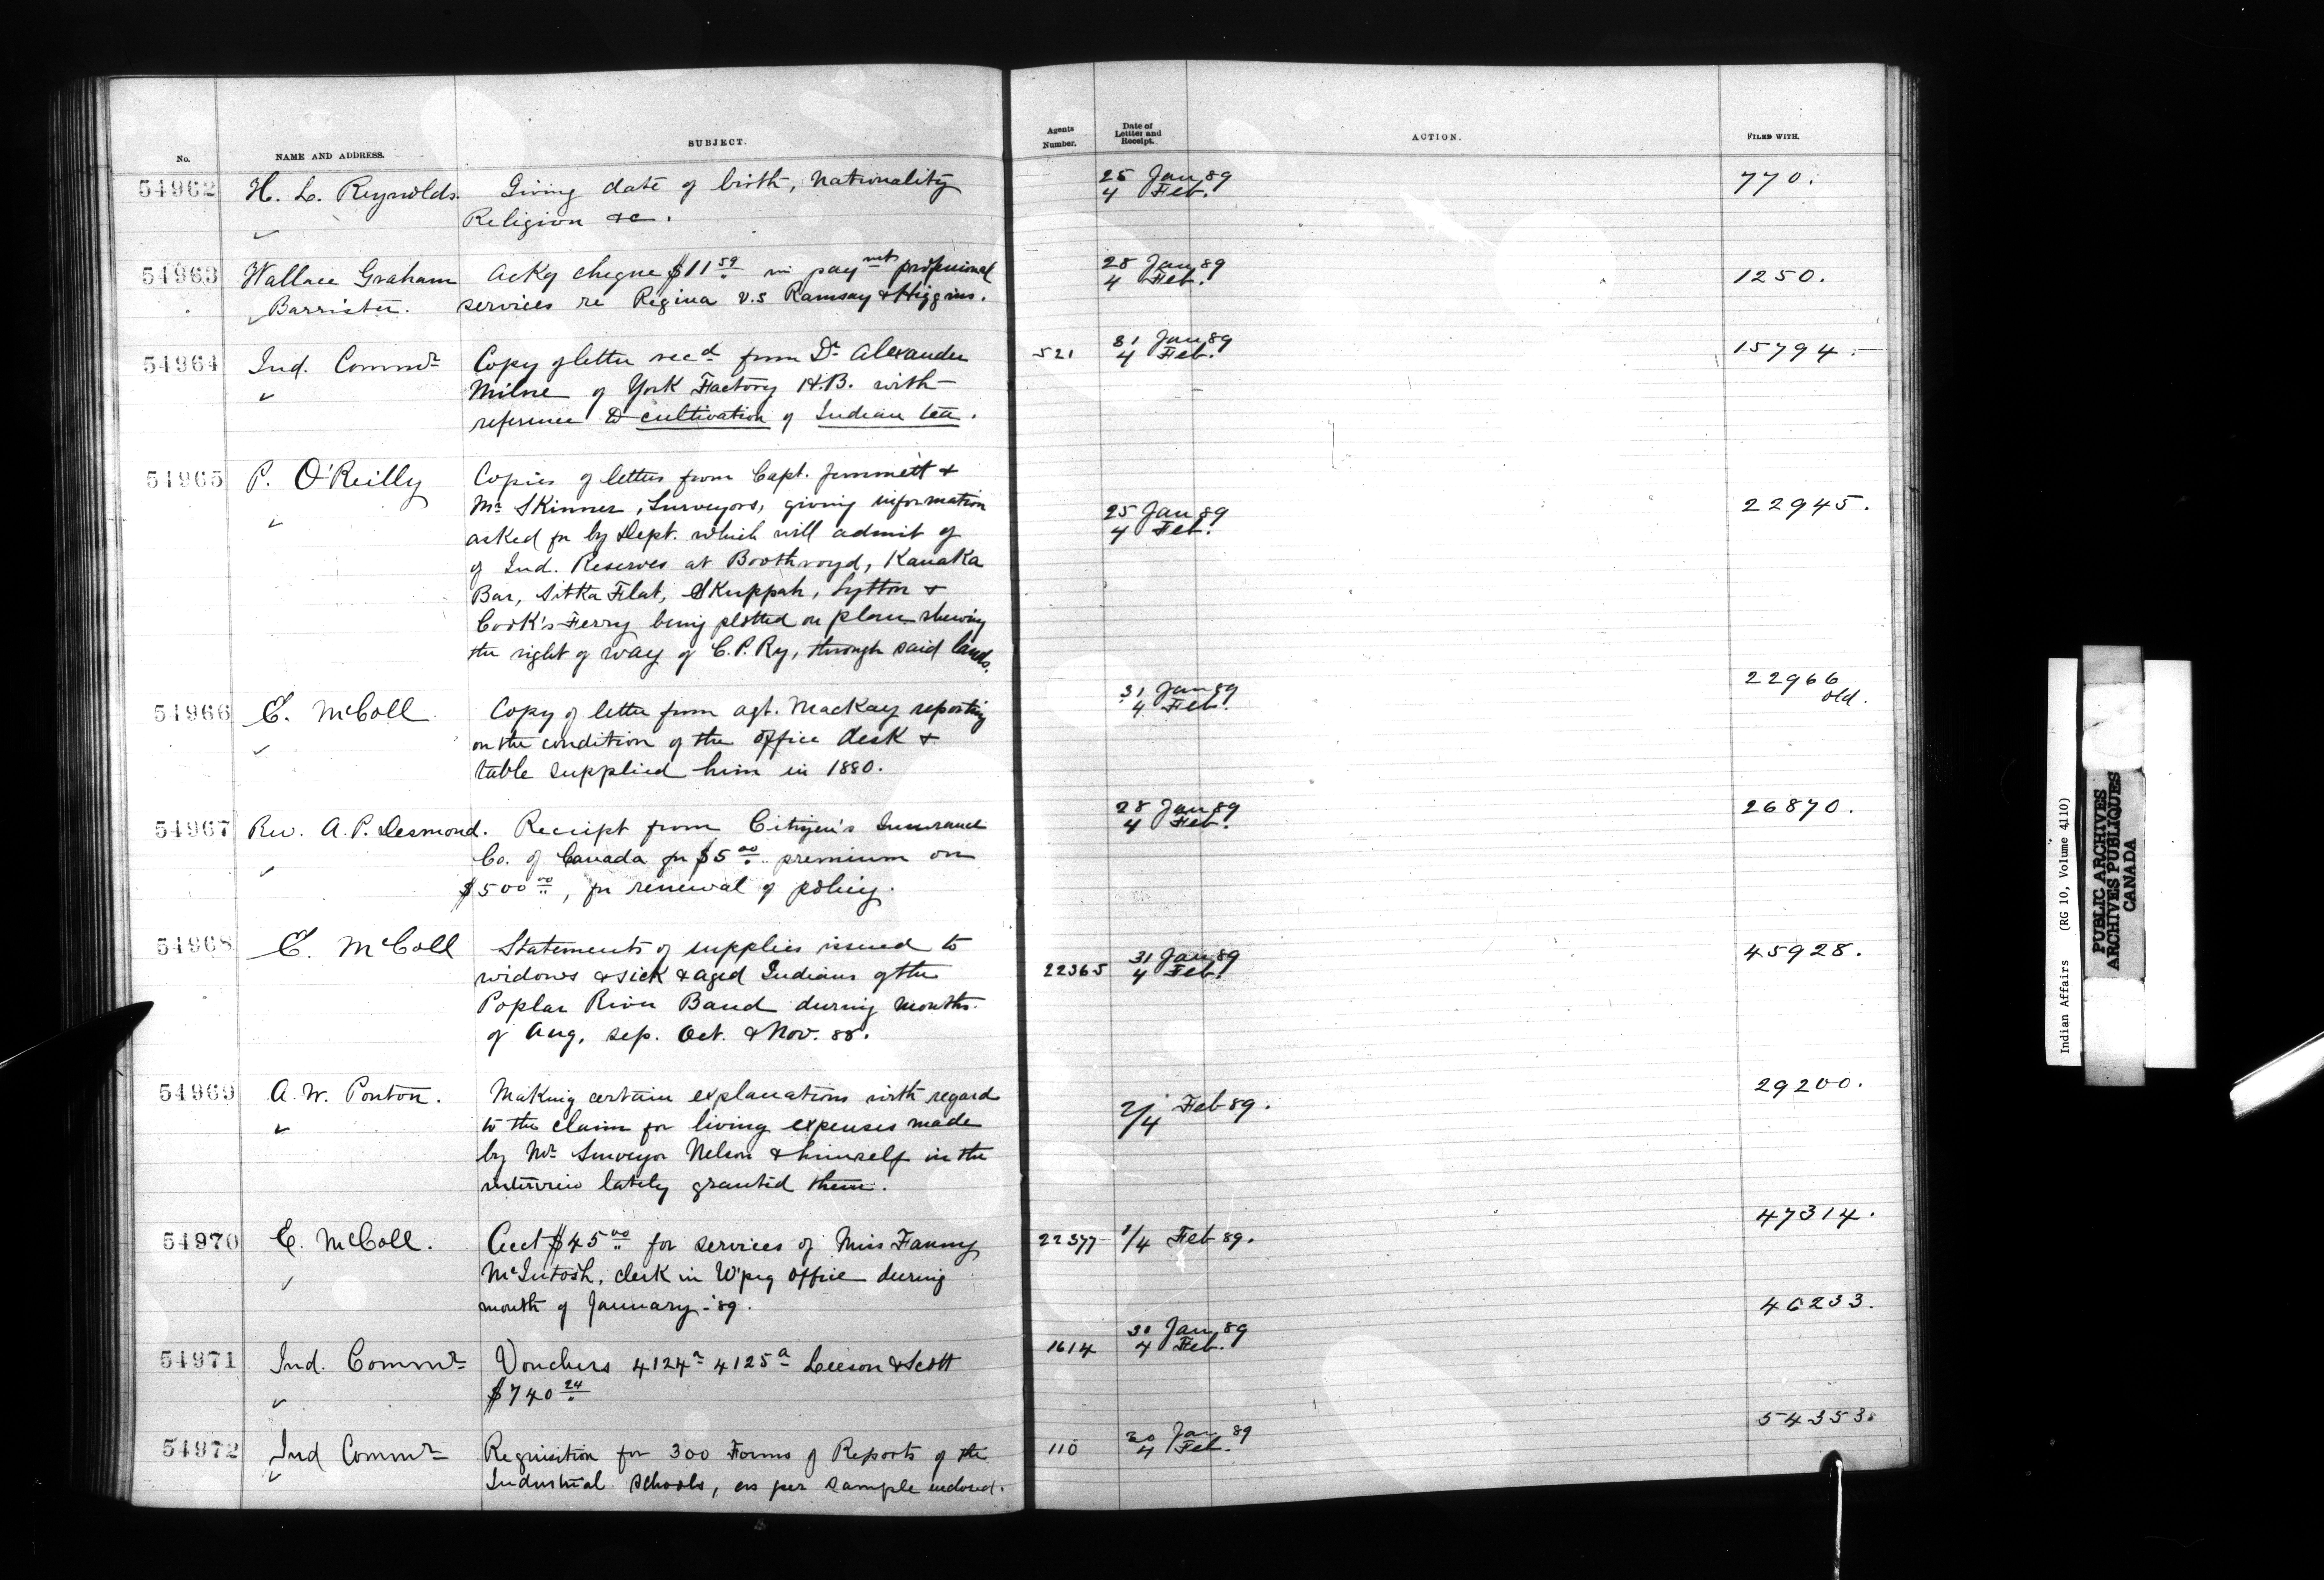 No. NAME AND ADDRESS. SUBJECT. Agents Number. Date of Letter and Receipt. ACTION. FILED WITH.
54962 H. L. Reynolds. Giving date of birth, nationality 25 Jan 89 770.
Religion &c. 4 Feb.
54963 Wallace Graham Ackg cheque $11 59 in paymts professional 28 Jan 89 1250.
Barrister. services re Regina v.s Ramsay & Higgins. 4 Feb.
54964 Ind. Commr Copy of letter recd from Dr Alexander 521 31 Jan 89 15794.
Milne of York Factory H.B. with 4 Feb.
reference to cultivation of Indian tea.
54965 P. O'Reilly Copies of letters from Capt. Jemmett &
Mr Skinner, Surveyors, giving information 25 Jan 89 22945.
asked for by Dept. which will admit of 4 Feb.
of Ind. Reserves at Boothroyd, Kanaka
Bar, Sitka Flat, Skuppah, Lytton &
Cook's Ferry being plotted on plan shewing
the right of way of C.P. Ry, through said lands.
54966 E. McColl Copy of letter from agt. Mackay reporting 31 Jan 89 22966 old.
on the condition of the office desk & 4 Feb.
table supplied him in 1880.
54967 Rev. A. P. Desmond. Receipt from Citizen's Insurance 28 Jan 89 26870.
Co. of Canada for $5 00 premium on 4 Feb.
$500 00, for renewal of policy.
54968 E. McColl Statements of supplies issued to 31 Jan 89 45928.
widows & sick & aged Indians of the 22365 4 Feb.
Poplar River Band during months
of Aug. Sep. Oct. & Nov. 88.
54969 A. W. Ponton. Making certain explanations with regard 2/4 Feb 89. 29200.
to the claim for living expenses made
by Mr Surveyor Nelson & himself in the
interview lately granted them.
54970 E. McColl. Acct $45 00 for services of Miss Fanny 22377 1/4 Feb 89. 47314.
McIntosh, clerk in W'peg office during
month of January '89.
54971 Ind. Commr Vouchers 4124a 4125a Leeson & Scott 1614 30 Jan 89 46233.
$740 24 4 Feb.
54972 Ind Commr Requisition for 300 Forms of Reports of the 110 30 Jan 89 54353.
Industrial Schools, as per sample enclosed. 4 Feb.
Indian Affairs (RG 10, Volume 4110)
PUBLIC ARCHIVES
ARCHIVES PUBLIQUES
CANADA